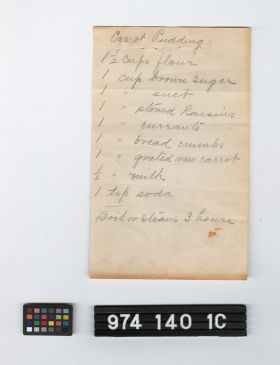 Carrot Pudding.
1 1/2 cups flour
1 cup brown sugar
1 " suet
1 " stoned Raisins
1 " currants
1 " bread crumbs
1 " grated raw carrot
1/2 " milk
1 tsp soda
Boil or steam 3 hours
974 140 1C